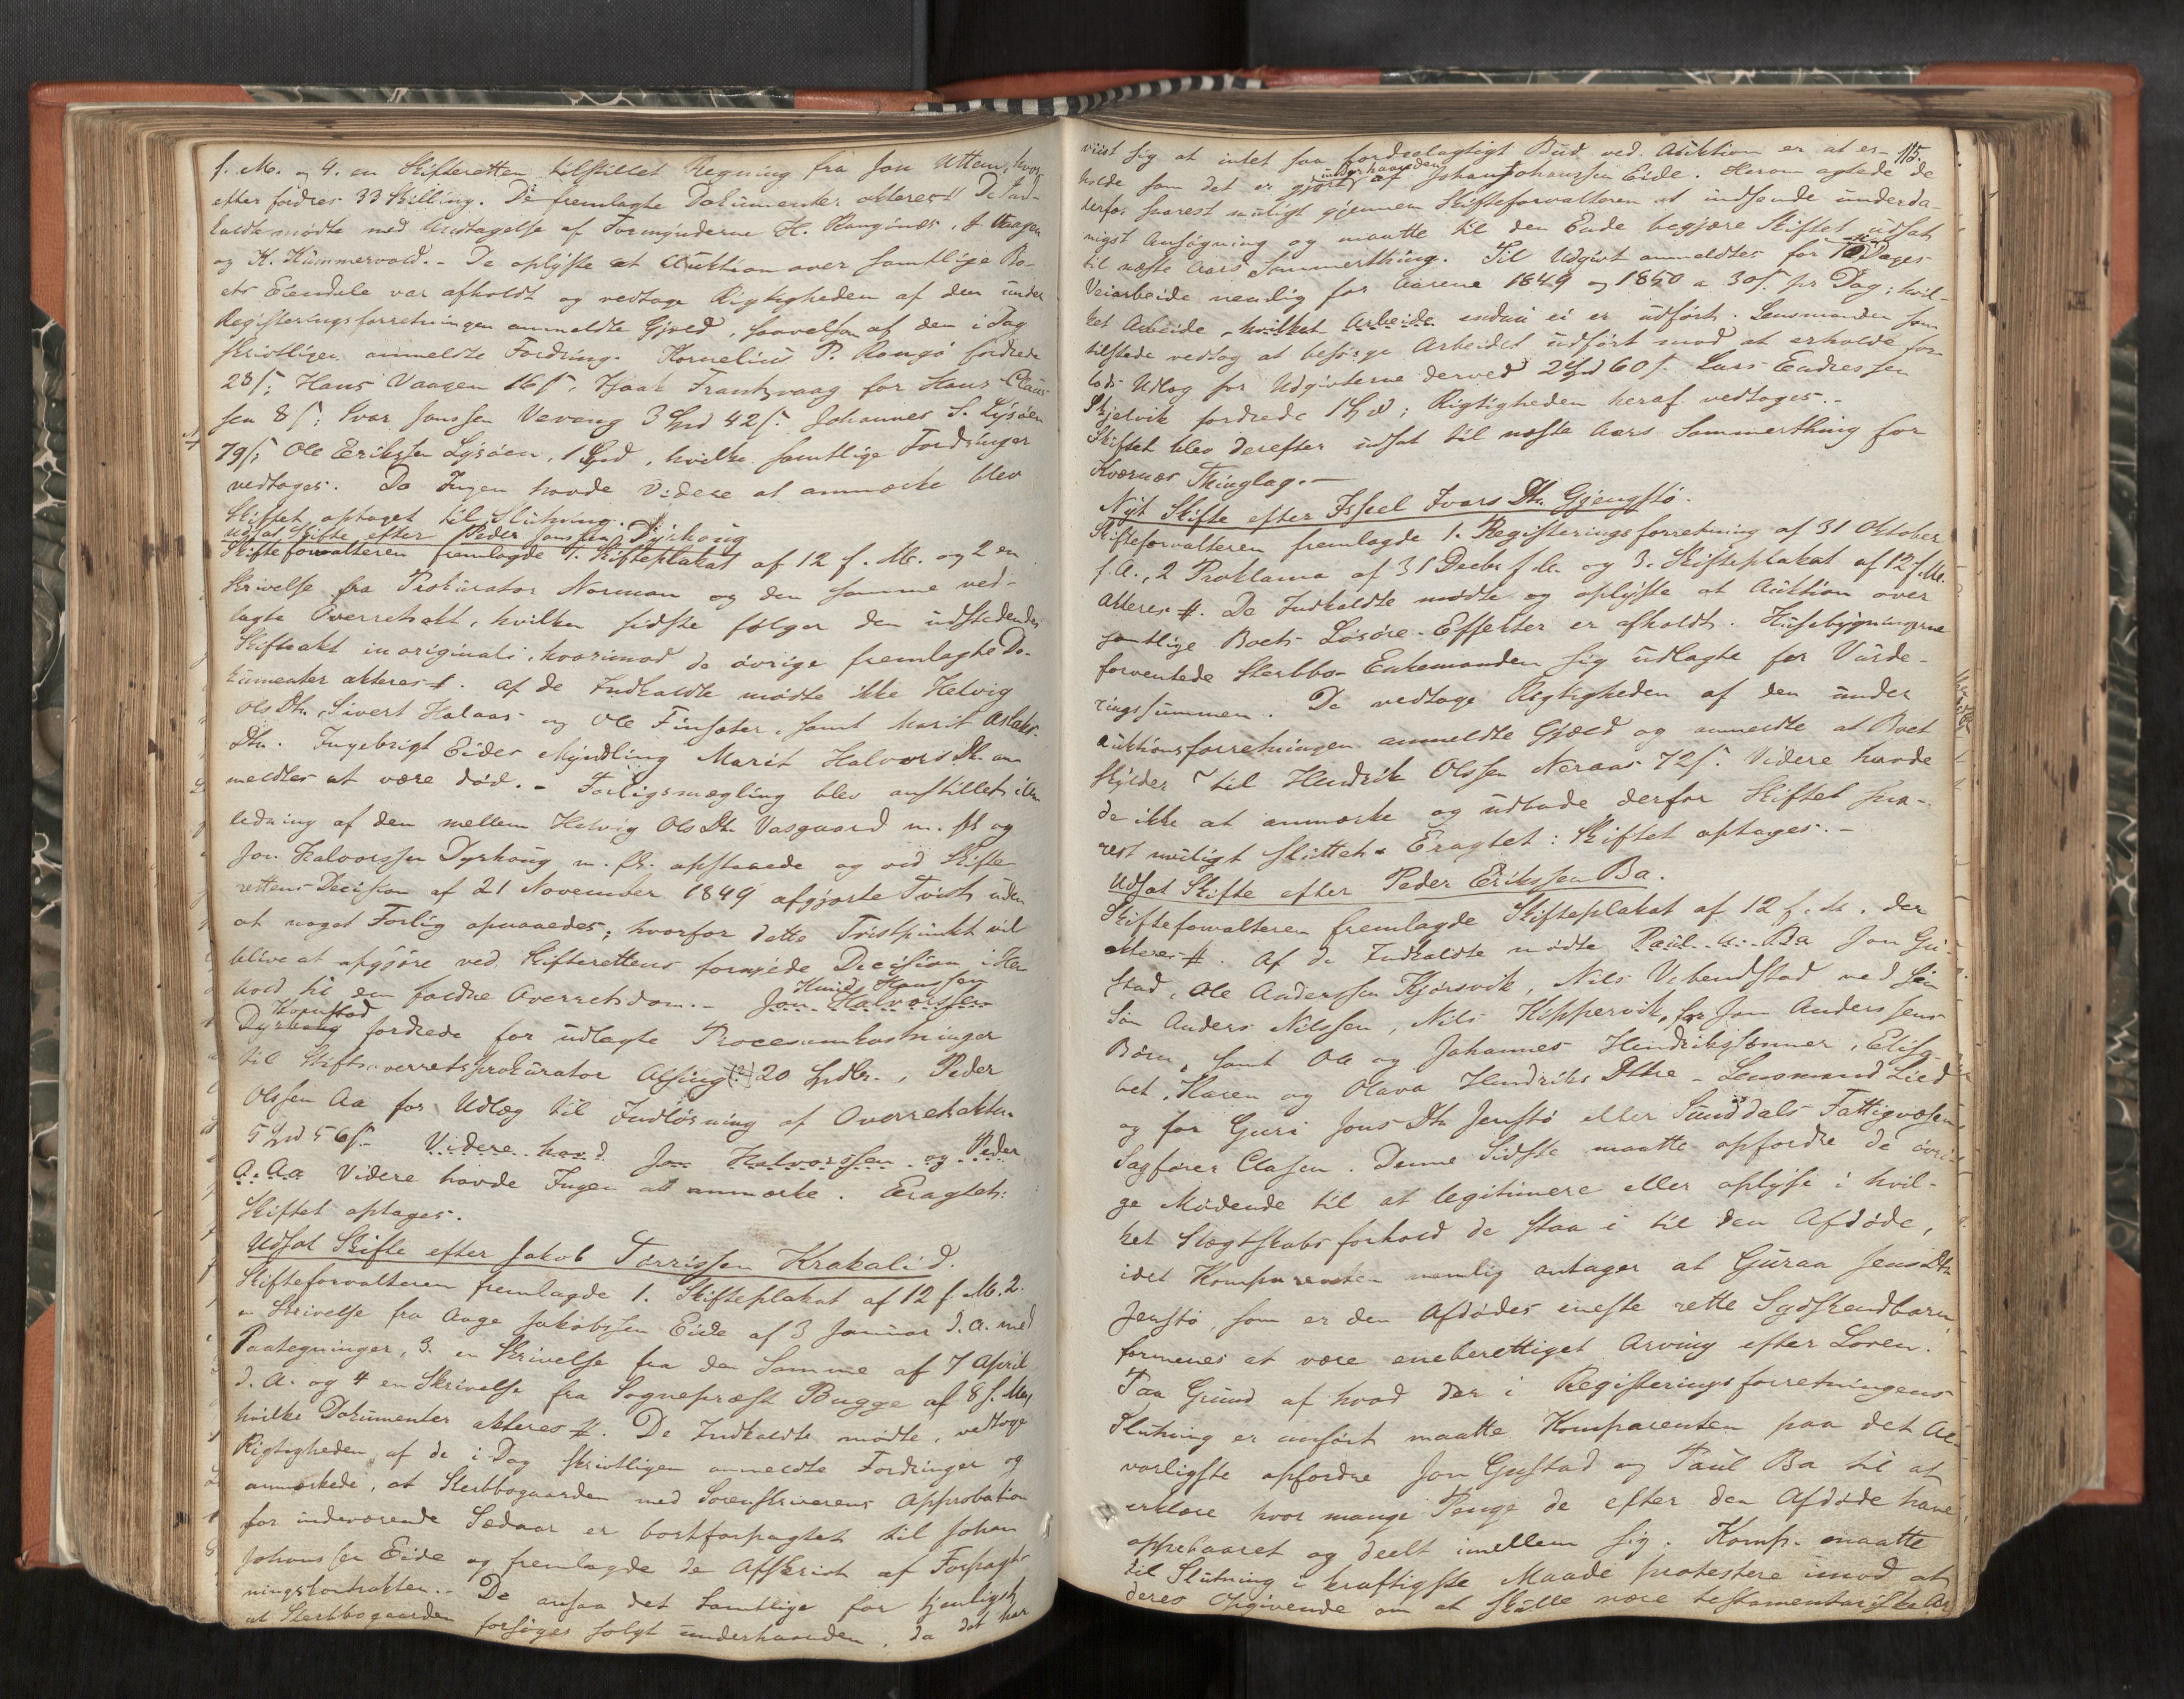 f. M. og 4. en Skifteretten tilstillet Regning fra Jon Utten, hvor-
efter fordres 33 Skilling. De fremlagte Dokumenter akteres #. De Ind-
kaldte mødte med Undtagelse af Formynderne H. Rangønes, A. Vaagen
og K. Kummervold. - De oplyste at Auktion over samtlige Bo-
ets Eiendele var afholdt og vedtoge Rigtigheden af den under
Registeringsforretningen anmeldte Gjeld, saavelsom af den i Dag
skriftligen anmeldte Fordring. Kornelius P. Rangø fordrede
28 s; Hans Vaagen 16 s. Isaak Frantzvaag for Hans Claus-
sen 8 s; Ivar Jonssen Vevang 3 Spd 42 s. Johannes S. Lysøen
79 s; Ole Erikssen Lysøen, 1 Spd, hvilke samtlige Fordringer
vedtoges. Da Ingen havde Videre at anmærke blev
Skiftet optaget til Slutning.
Udsat Skifte efter Peder Jonssen Dyrhoug
Skifteforvalteren fremlagde 1. Skifteplakat af 12 f. M. og 2 en
Skrivelse fra Prokurator Norman og den samme ved-
lagte Overretsakt, hvilken sidste følger den udstedende
Skifteakt in originali, hvorimod de øvrige fremlagte Do-
kumenter akteres #. Af de Indkaldte mødte ikke Helvig
Ols Dtr. Sivert Halaas og Ole Finsæter, samt Marit Aslaks
Dtr. Ingebrigt Eides Myndling Marit Halvors Dtr. an-
meldtes at være død. - Forligsmægling blev anstillet i An-
ledning af den mellem Helvig Ols Dtr. Vasgaard m. fl. og
Jon Halvorssen Dyrhoug m. fl. opstaaede og ved Skifte-
rettens Decision af 21 November 1849 afgjorte Tvist uden
at noget Forlig opnaaedes; hvorfor dette Tvistpunkt vil
blive at afgjøre ved Skifterettens fornyede Decision i Hen-
hold til den faldne Overretsdom. - Jon Halvorssen
Knud Hanssen
Dyrhoug fordrede for udlagte Procesomkostninger
Kornstad
til Stiftsoverretsprokurator Alsing (?) 20 Spdlr., Peder
Olssen Aa for Udlæg til Indløsning af Overretsakten
5 Spd 56 s. Videre havd Jon Halvorssen og Peder
O. Aa Videre havde Ingen at anmærke. Eragtet:
Skiftet optages.
Udsat Skifte efter Jakob Tørrissen Krakalid.
Skifteforvalteren fremlagde 1. Skifteplakat af 12 f. M. 2.
en Skrivelse fra Aage Jakobssen Eide af 3 Januar d. A. med
Paategninger, 3. en Skrivelse fra den Samme af 7 April
d. A. og 4 en Skrivelse fra Sognepræst Bugge af 8 f. M.,
hvilke Dokumenter akteres #. De Indkaldte mødte, vedtoge
Rigtigheden af de i Dag skriftligen anmeldte Fordringer og
anmærkede, at Sterbbogaarden med Sorenskriverens Approbation
for indeværende Sædaar er bortforpagtet til Johan
Johanssen Eide og fremlagde de Afskrift af Forpagt-
ningskontrakten. - De ansaa det Samtlige for tjenligst
at Sterbbogaarden forsøges solgt underhaanden, da det har
115.
viist sig at intet saa fordeelagtigt Bud ved Auktion er at er-
holde som det er gjort af Johan Johanssen Eide. Herom agtede de
underhaanden
derfor snarest muligt gjennem Skifteforvalteren at indsende underda-
nigst Ansøgning og maatte til den Ende begjære Skiftet udsat
til næste Aars Sommerthing. Til Udgivt anmeldtes for Dages
Veiarbeide nemlig for Aarene 1849 og 1850 a 30 s. pr Dag; hvil-
ket Arbeide hvilket Arbeide endnu ei er udført. Lensmanden som
tilstede vedtog at besørge Arbeidet udført mod at erholde for-
lods Udlæg for Udgivterne derved 2 Spd 60 s. Lars Endressen
Skjelvik fordrede 1 Spd; Rigtigheden heraf vedtoges. -
Skiftet blev derefter udsat til næste Aars Sommerthing for
Kværnes Thinglag. -
Nyt Skifte efter Issel Ivars Dtr. Gjengstø.
Skifteforvalteren fremlagde 1. Registeringsforretning af 31 Oktober
f. A., 2 Proklama af 31 Decbr f. A. og 3. Skifteplakat af 12 f. M.
Akteres #. De Indkaldte mødte og oplyste at Auktion over
samtlige Boets Løsøre-Effekter er afholdt. Husebygningerne
forventede Sterbbo-Enkemanden sig udlagte for Vurde-
ringssummen. De vedtoge Rigtigheden af den under
Auktionsforretningen anmeldte Gjæld og anmeldte at Boet
skylder til Hendrik Olssen Neraas 72 s. Videre havde
de ikke at anmærke og udbade derfor Skiftet sna-
rest muligt sluttet. Eragtet: Skiftet optages. -
Udsat Skifte efter Peder Erikssen Ba.
Skifteforvalteren fremlagde Skifteplakat af 12 f. M. der
akteres #. Af de Indkaldte mødte Paul A. Ba Jon Gu-
stad, Ole Anderssen Kjørsvik, Nils Vebenstad ved sin
Søn Anders Nilssen, Nils Kippervik, for Jon Anderssens
Børn, samt Ole og Johannes Hendrikssønner, Elisa-
bet, Karen og Olava Hendriks Døttre - Lensmand Lied
og for Guri Jons Dtr Jenstø eller Sunddals Fattigvæsen
Sagfører Clasen. Denne Sidste maatte opfordre de øvri-
ge Mødende til at legitimere eller oplyse i hvil-
ket Slægtskabsforhold de staa i til den Afdøde,
idet Komparenten nemlig antager at Guraa Jens Dtr
Jenstø, som er den Afdødes eneste rette Sydskendbarn,
formenes at være eneberettiget Arving efter Loven.
Paa Grund af hvad der i Registeringsforretningens
Slutning er anført maatte Komparenten paa det Al-
vorligste opfordre Jon Gustad og Paul Ba til at
erklære hvor mange Penge de efter den Afdøde have
oppebaaret og deelt imellem sig. Komp. maatte
til Slutning i kraftigste Maade protestere imod at
deres Angivende om at skulle være testamentariske Ar-